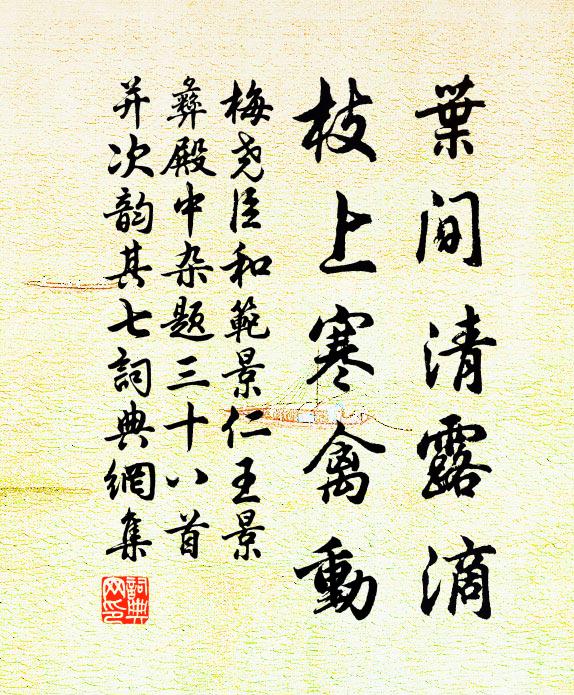 葉間清露滴
枝上寒禽動
梅尧臣和範景仁王景
彝殿中杂题三十八首
并次韵其七詞典網集
詞典网印